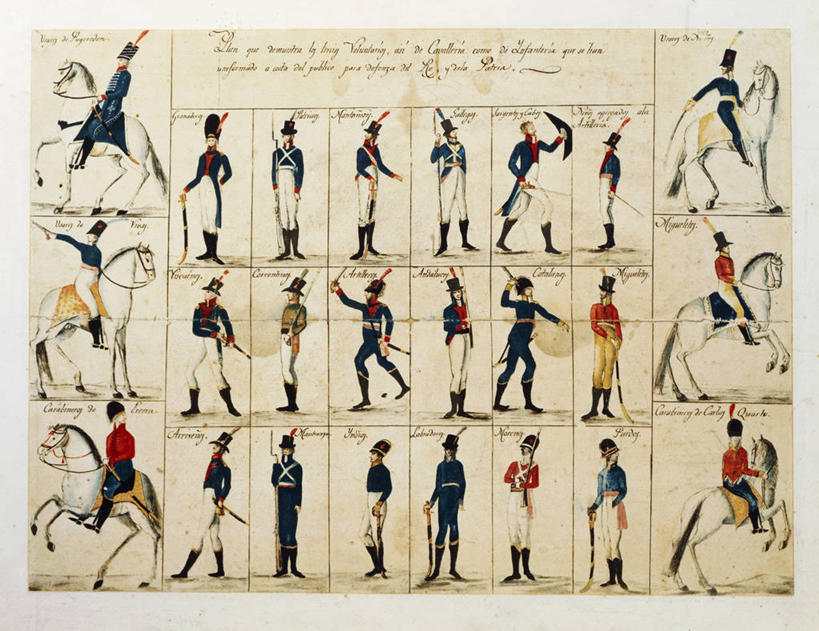 Plan que demuestra los Cuerpos Voluntarios, asi de Cavalleria como de Infanteria que se han
uniformado a costa del publico para defenza del Rey y de la Patria.
Usares de Puyrredon
Usares de
Granaderos
Patricios
Montañeses
Gallegos
Sargentos y Cabos
agregados ala
Artilleria
Usares de Vivas
Migueletes
Vizcainos
Correntinos
Artilleros
Andaluces
Catalanes
Migueletes
Carabineros de
Carabineros de Carlos Quarto
Arriveños
Indios
Labradores
Morenos
Pardos